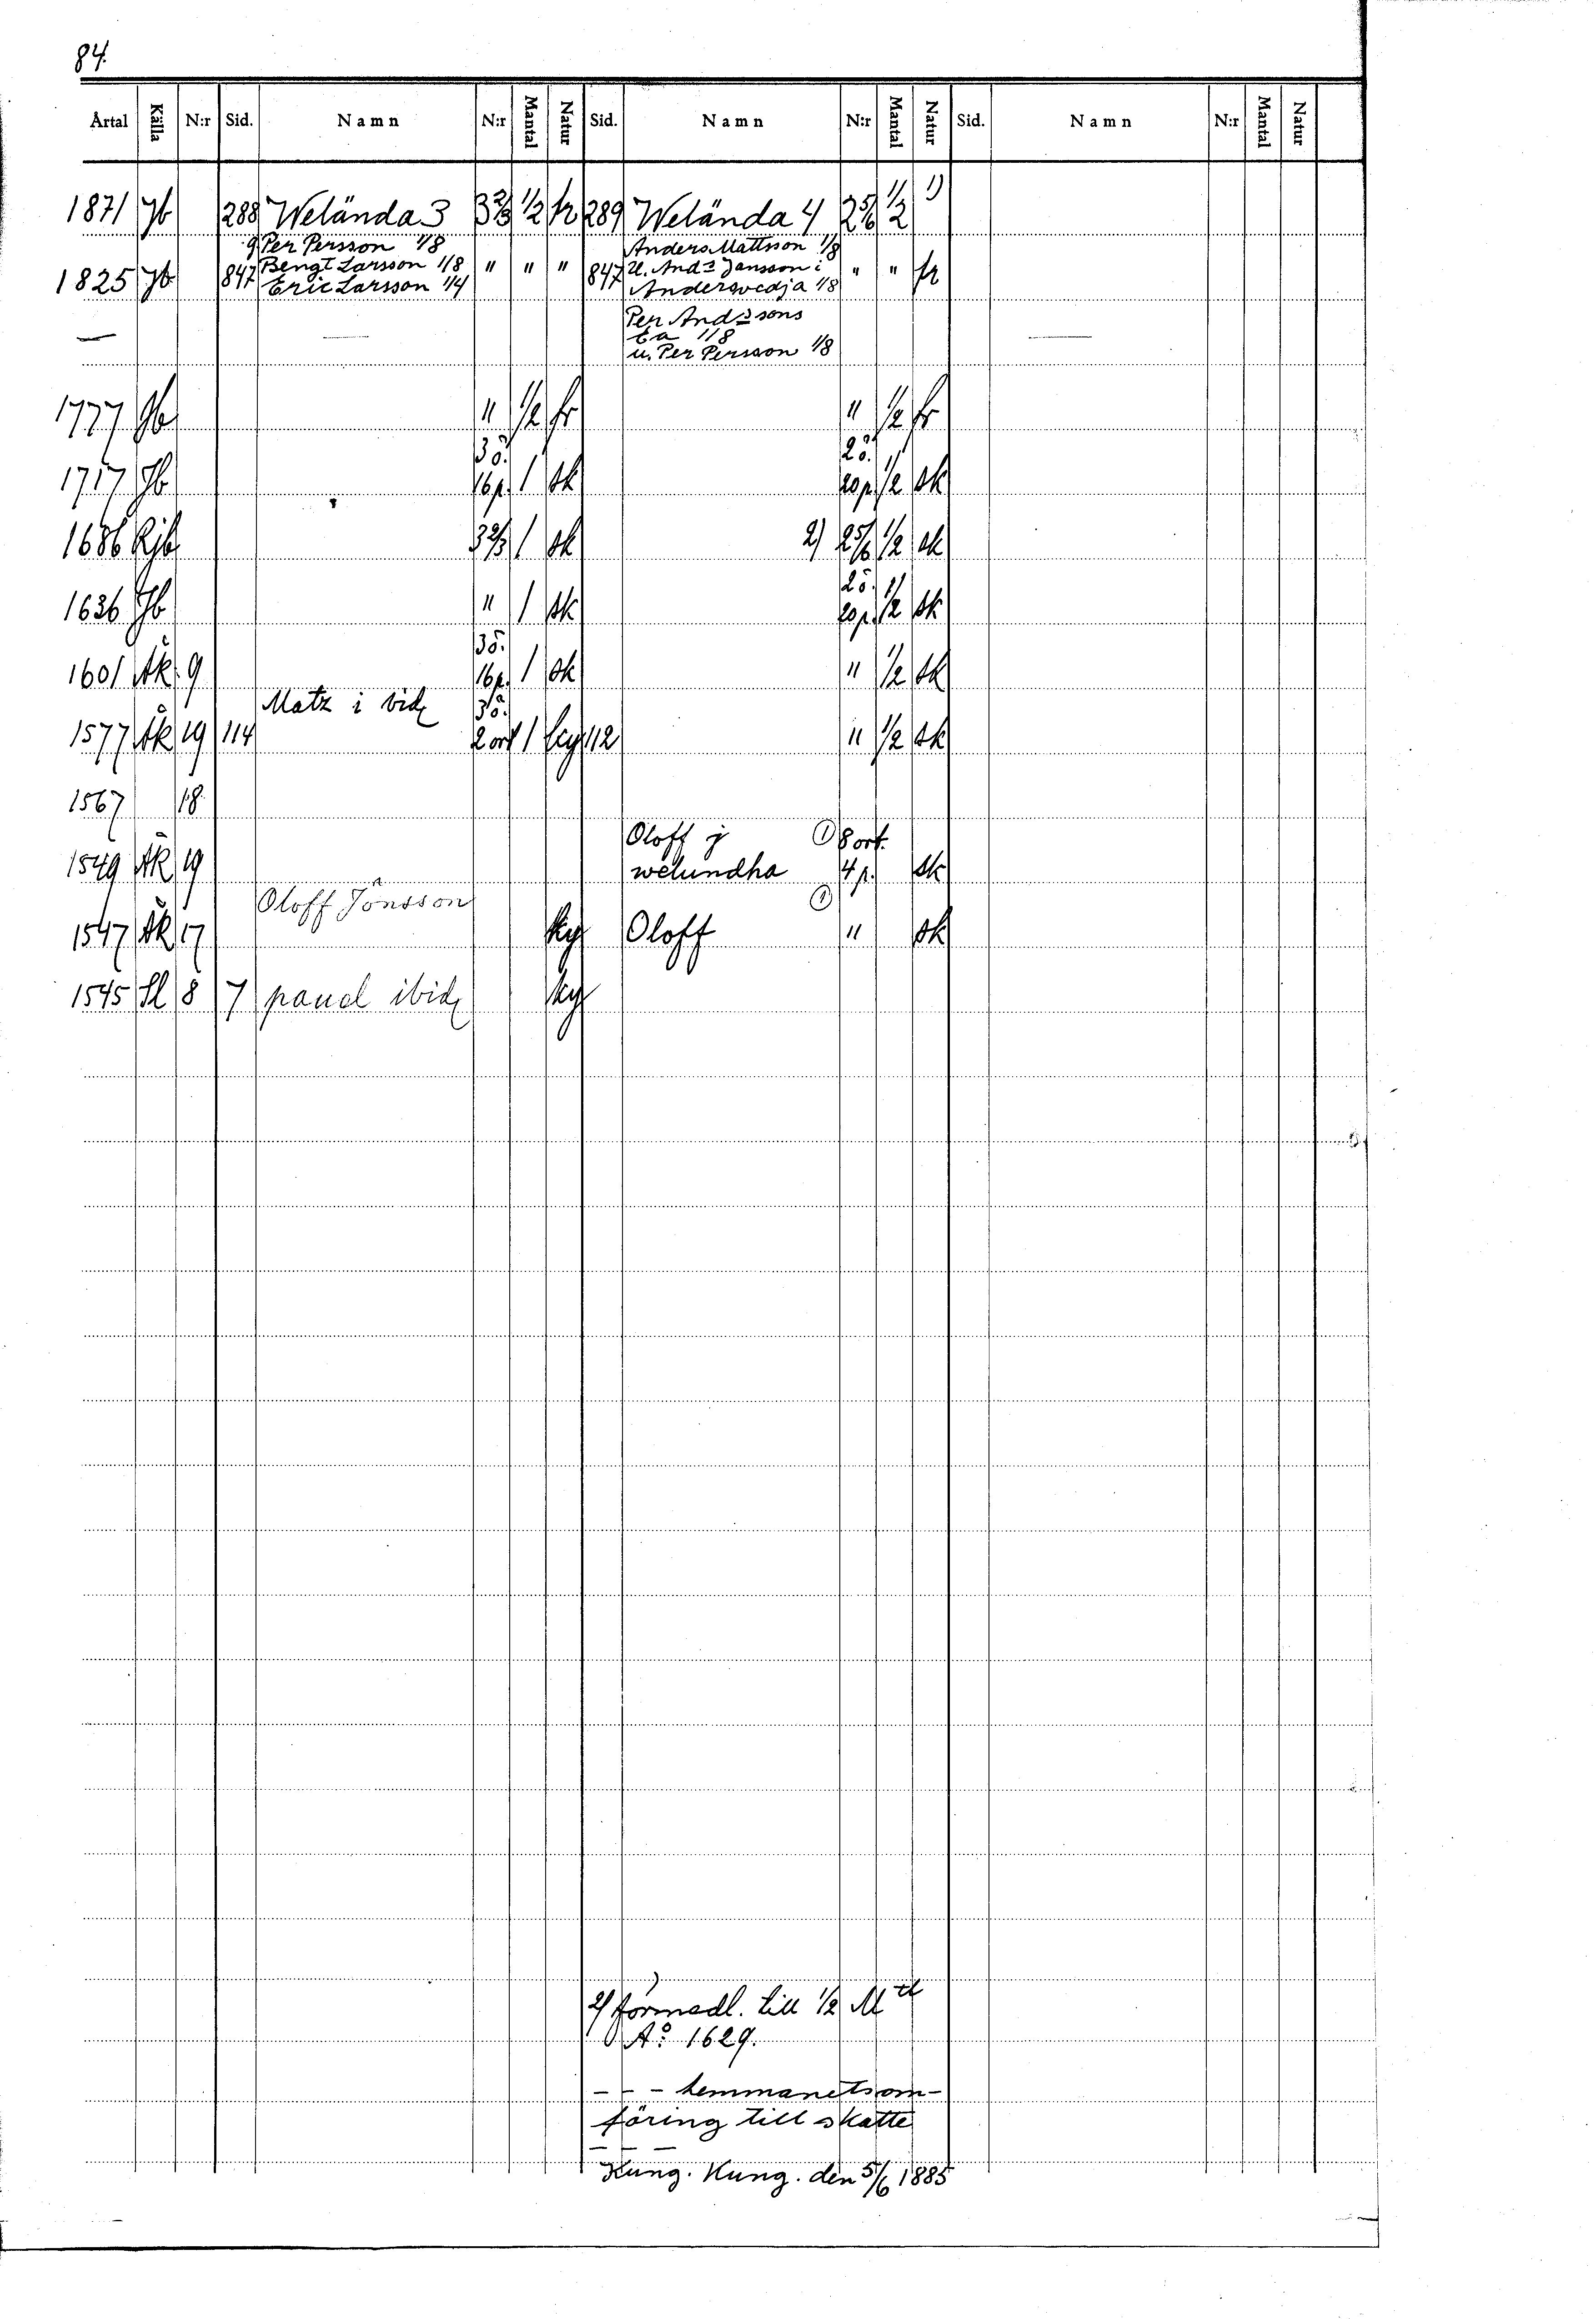 84.
Årtal Källa N:r Sid. Namn N:r Mantal Natur Sid. Namn N:r Mantal Natur Sid. Namn N:r Mantal Natur
1871 Jb 288 Welända 3 3 2/3 1/2 fr 289 Welända 4 2 5/6 1/2 1)
9 Per Persson 1/8 Anders Mattsson 1/8
1825 Jb 847 Bengt Larsson 1/8 " " " 847 U. And:s Jansson i " " fr
Eric Larsson 1/4 Andersvedja 1/8
Per And:s sons
Ea 1/8
— u. Per Persson 1/8
1777 Jb " 1/2 fr " 1/2 fr
3ö. 2ö.
1717 Jb 16p. 1 sk 20p. 1/2 sk
1686 Rjb 3 2/3 1 sk 2) 2 5/6 1/2 sk
2ö.
1636 Jb " 1 sk 20p. 1/2 sk
3ö.
1601 Åk. 9 16p. 1 sk " 1/2 sk
Matz i bid 3ö.
1577 Åk 19 114 2 ort 1 sky 112 " 1/2 sk
1567 18
Oloff j 1) 8 ort.
1549 Åk 19 welundha 4p. sk
Oloff Jönsson 1)
1547 Åk 17 sky Oloff " sk
1545 Sl 8 7 pauel ibid sky
2) förmedl. till 1/2 M tl
Aº 1629.
- - - hemmanets om-
föring till skatte
- - -
Kung. Kung. den 5/6 1885